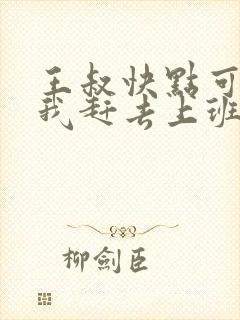 王叔快點可
我赶去上班
柳劍臣